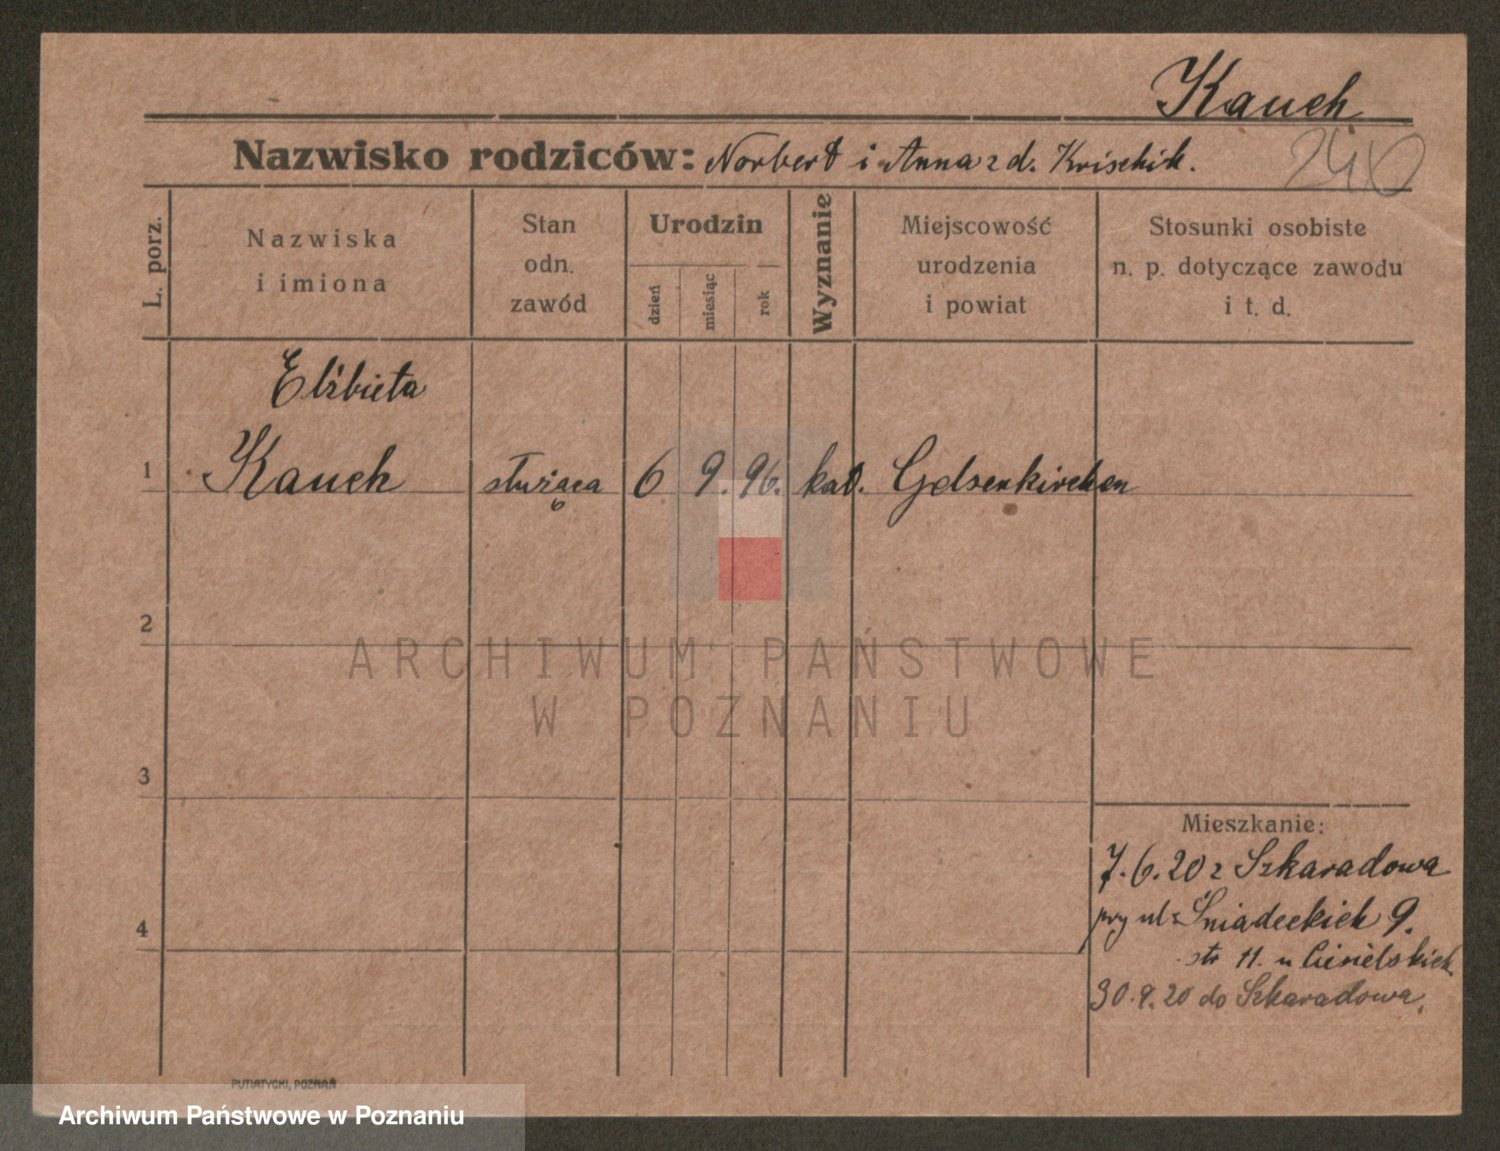 Kauch
Nazwisko rodziców: Norbert i Anna z d. Krischik.
240
L. porz.
Nazwiska
i imiona
Stan
odn.
zawód
Urodzin
dzień
miesiąc
rok
Wyznanie
Miejscowość
urodzenia
i powiat
Stosunki osobiste
n. p. dotyczące zawodu
i t. d.
Elżbieta
1 Kauch służąca 6 9. 96. kat. Gelsenkirchen
2
ARCHIWUM PAŃSTWOWE
W POZNANIU
3
Mieszkanie:
7.6.20 z Szkaradowa
przy ul. Śniadeckich 9.
4
str 11. u Ciesielskich
30.9.20 do Szkaradowa.
PUTIATYCKI, POZNAŃ
Archiwum Państwowe w Poznaniu